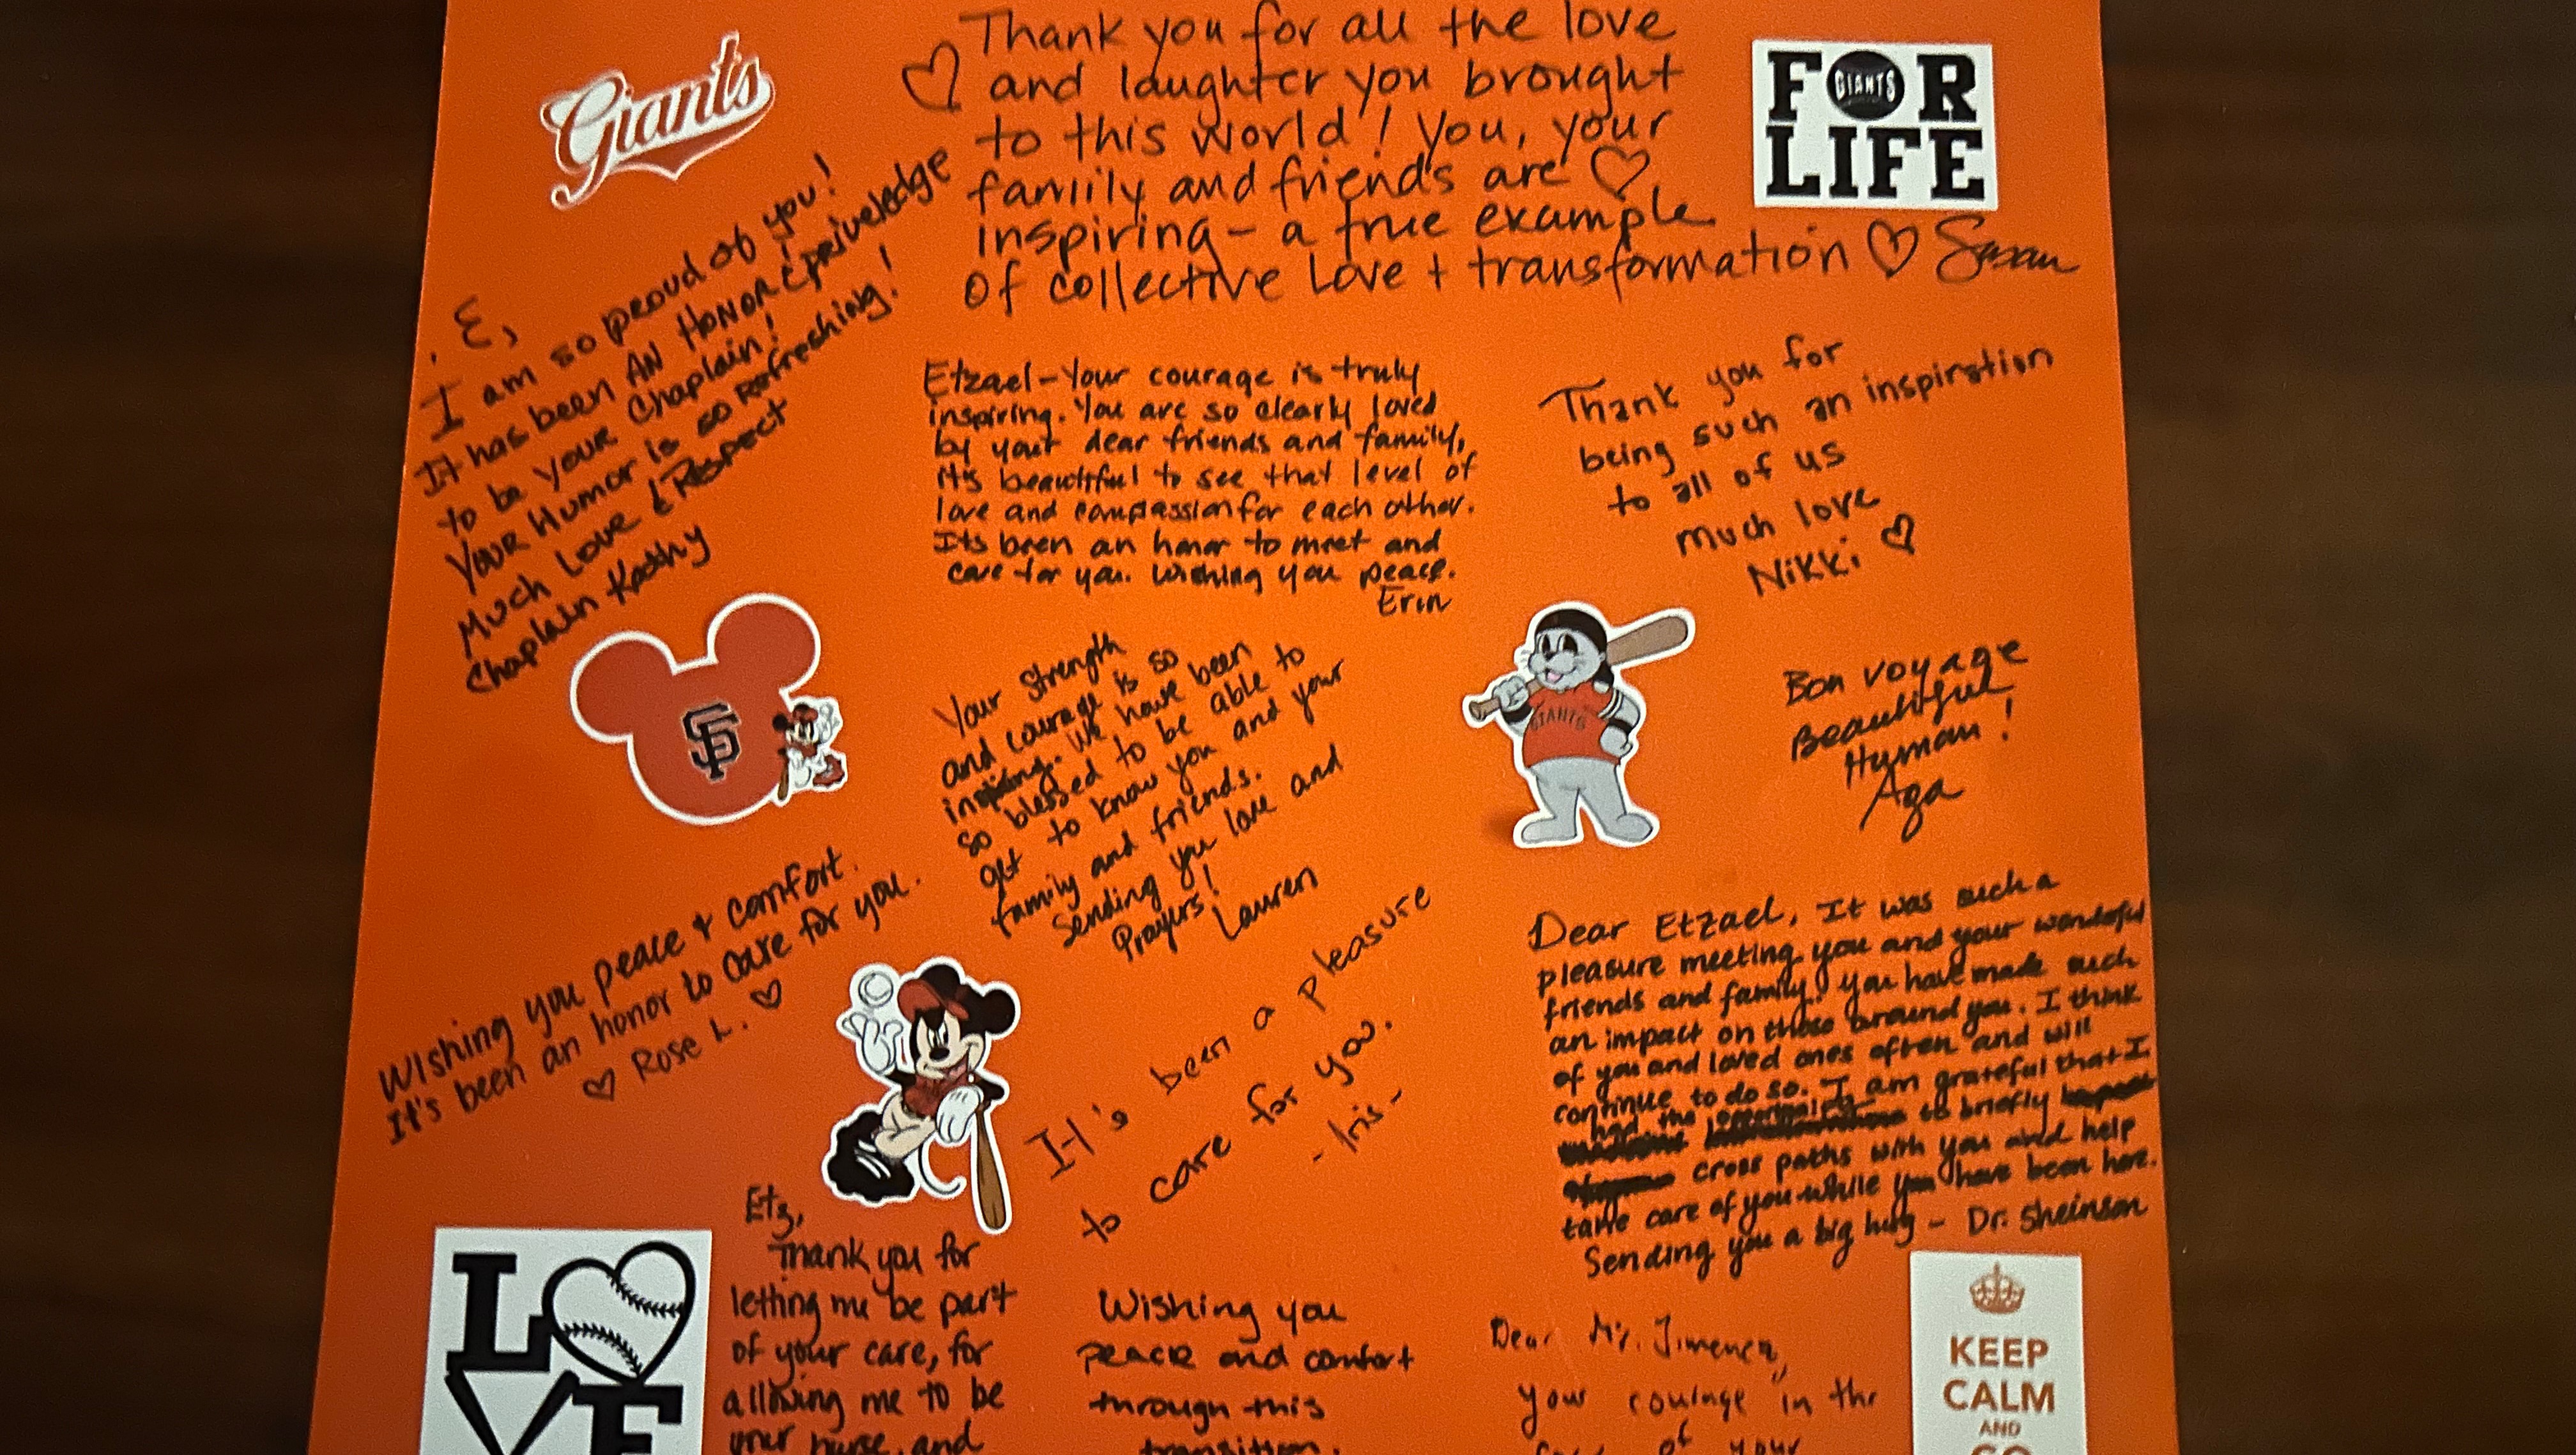 Giants
Thank you for all the love
and laughter you brought
to this world! You, your
family and friends are
inspiring - a true example
of collective love + transformation Susan
FOR
GIANTS
LIFE
E,
I am so proud of you!
It has been AN HONOR & priveledge
to be your Chaplain!
Your Humor is so Refreshing!
Much Love & Respect
Chaplain Kathy
Etzael - Your courage is truly
inspiring. You are so clearly loved
by your dear friends and family,
it's beautiful to see that level of
love and compassion for each other.
Its been an honor to meet and
care for you. Wishing you peace.
Erin
Thank you for
being such an inspiration
to all of us
much love
Nikki
SF
Your strength
and courage is so
inspiring. We have been
so blessed to be able to
get to know you and your
family and friends.
Sending you love and
Prayers!
Lauren
GIANTS
Bon voyage
Beautiful
Human!
Aga
Wishing you peace + comfort.
It's been an honor to care for you.
Rose L.
It's been a pleasure
to care for you.
- Iris -
Dear Etzael, It was such a
pleasure meeting you and your wonderful
friends and family! You have made such
an impact on those around you. I think
of you and loved ones often and will
continue to do so. I am grateful that I
had the opportunity to briefly
cross paths with you and help
take care of you while you have been here.
Sending you a big hug - Dr. Sheinson
LOVE
Etz,
Thank you for
letting me be part
of your care, for
allowing me to be
your nurse, and
Wishing you
peace and comfort
through this
transition.
Dear Mr. Jimenez,
your courage in the
of your
KEEP
CALM
AND
GO